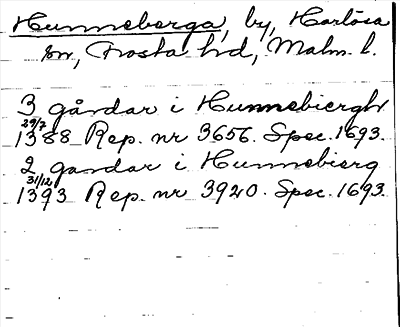 Hunneberga, by, Harlösa
sn, Frosta hd, Malm. l.
3 gårdar i Hunnebiergh
29/7
1388 Rep. nr 3656. Spec. 1693.
2 gardar i Hunnebierg
31/12
1393 Rep. nr 3920. Spec. 1693.